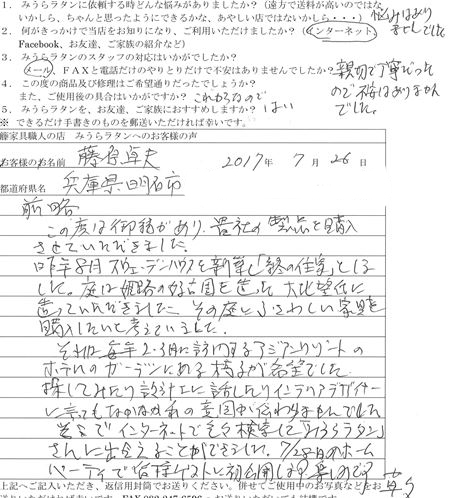 1. みうらラタンに依頼する時どんな悩みがありましたか?(遠方で送料が高いのではな
いかしら、ちゃんと思ったようにできるかな、あやしい店ではないかしら・・・) 悩みはあり
ませんでした
2. 何がきっかけで当店をお知りになり、ご利用いただけましたか?(インターネット、
Facebook、お友達、ご家族の紹介など)
3. みうらラタンのスタッフの対応はいかがでしたか?
(メール、FAXと電話だけのやりとりだけで不安はありませんでしたか? 親切で丁寧だった
ので不安はありません
でした。
4. この度の商品及び修理はご希望通りだったでしょうか?
また、ご使用後の具合はいかがですか? これからなので
5. みうらラタンを、お友達、ご家族におすすめしますか? はい
※ できるだけ手書きのものを郵送いただければ幸いです。
籐家具職人の店 みうらラタンへのお客様の声
お客様のお名前 藤原卓夫 2017年 7月 26日
都道府県名 兵庫県明石市
前略
この度は御縁があり、貴社の製品を購入
させていただきました。
昨年8月 スウェーデンハウスを新築し「終の住家」としま
した。庭は姫路の好古園を造った 大北望氏に
造っていただきました。その庭にふさわしい家具を
購入したいと考えていました。
それは毎年2・3月に訪問するアジアンリゾートの
ホテルのガーデンにある椅子が希望でした。
探してみたり設計士に話したりインテリアデザイナー
に言ってもなかなか私の意図が伝わりませんでした
そこでインターネットで色々検索して「みうらラタン」
さんに出会えることができました。7/28日のホーム
パーティで皆様ゲストに初公開
上記へご記入いただき、返信用封筒でお送りください。併せてご使用中のお写真などをお